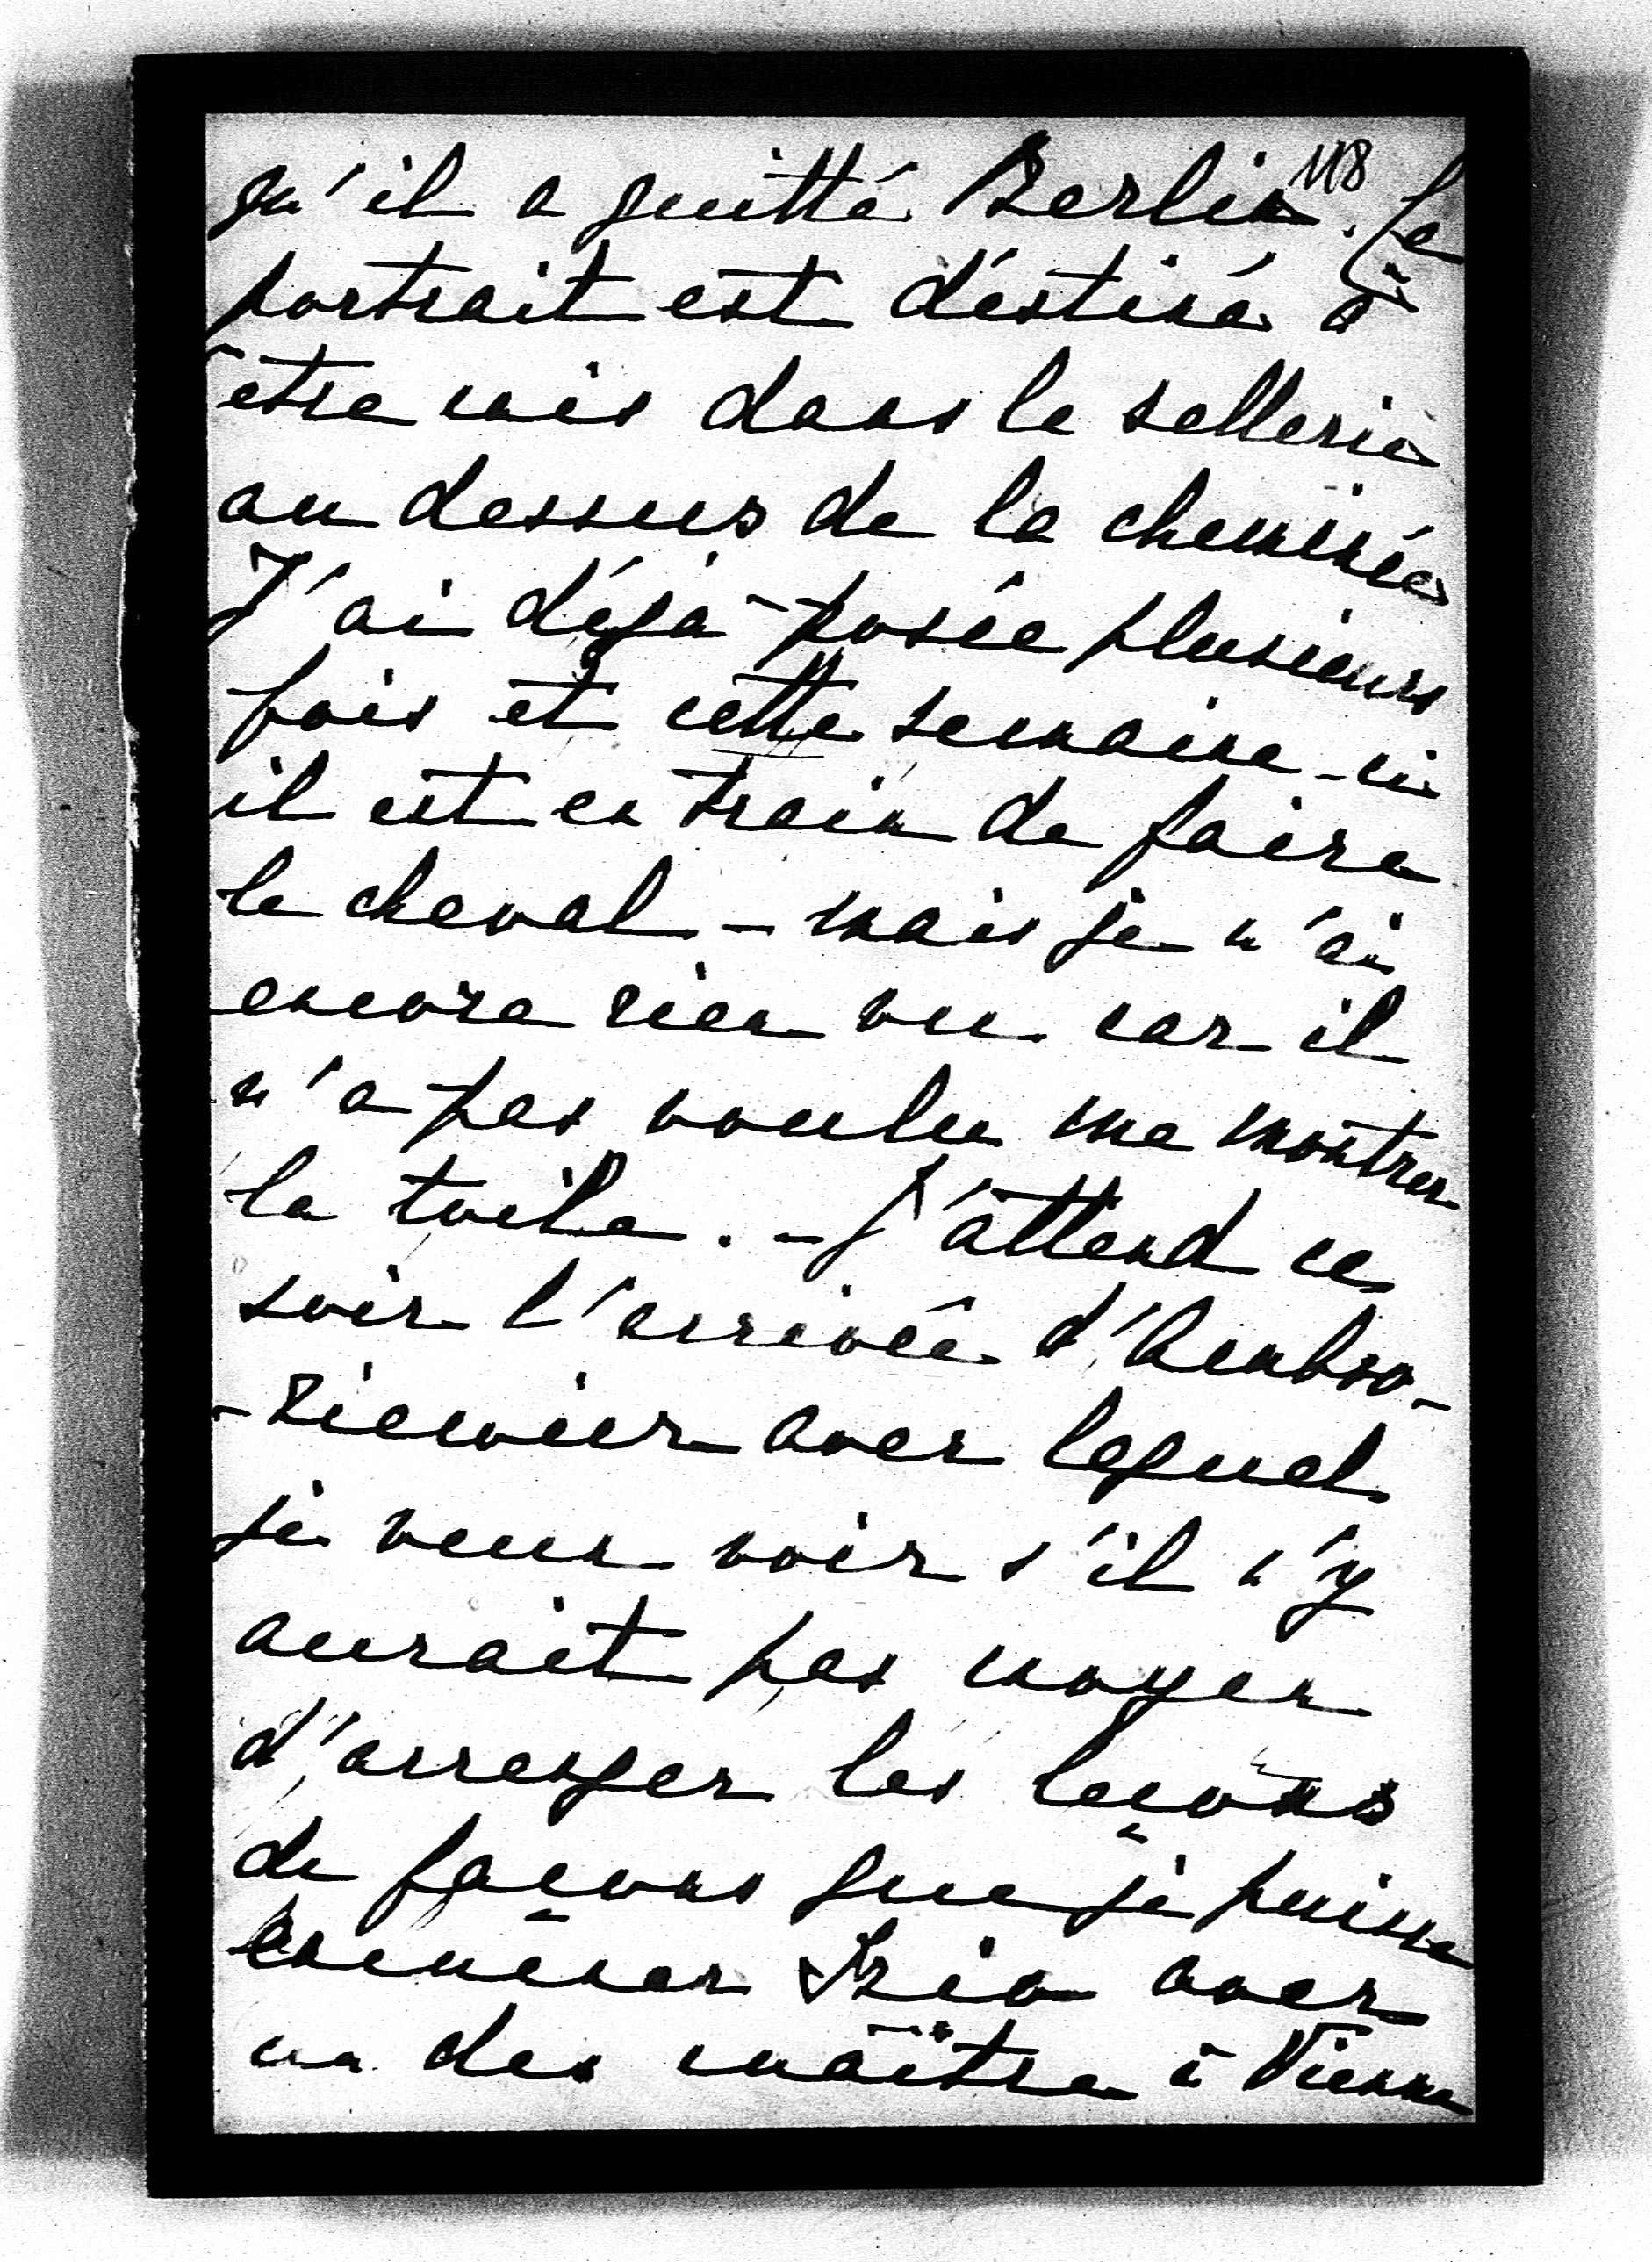 118
qu'il a quitté Berlin. Le
portrait est déstiné à
être mis dans la sellerie
au dessus de la cheminée
J'ai déjà posée plusieurs
fois et cette semaine-ci
il est en train de faire
le cheval - mais je n'ai
encore rien vu car il
n'a pas voulu me montrer
la toile. - J'attend ce
soir l'arrivée d'Ambro-
-ziewicz avec lequel
je veux voir s'il n'y
aurait pas moyen
d'arranger les leçons
de façons que je puisse
emmener avec
un des maître à Vienne